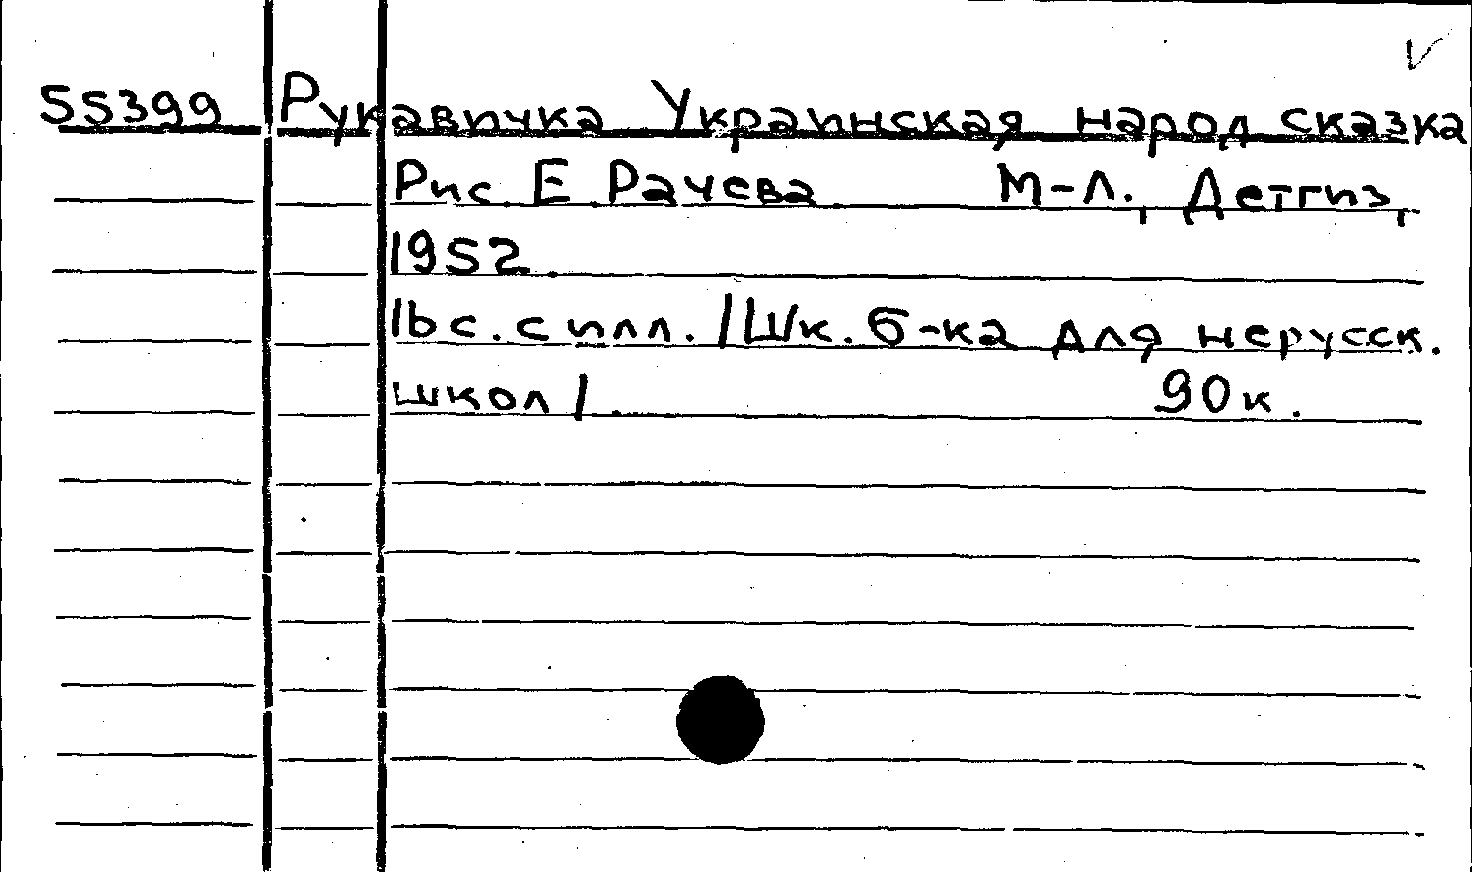 55399 Рукавичка Украинская народ сказка
Рис. Е. Рачева М-Л., Детгиз,
1952.
16 с. с илл. /Шк. б-ка для нерусск.
школ/. 90 к.